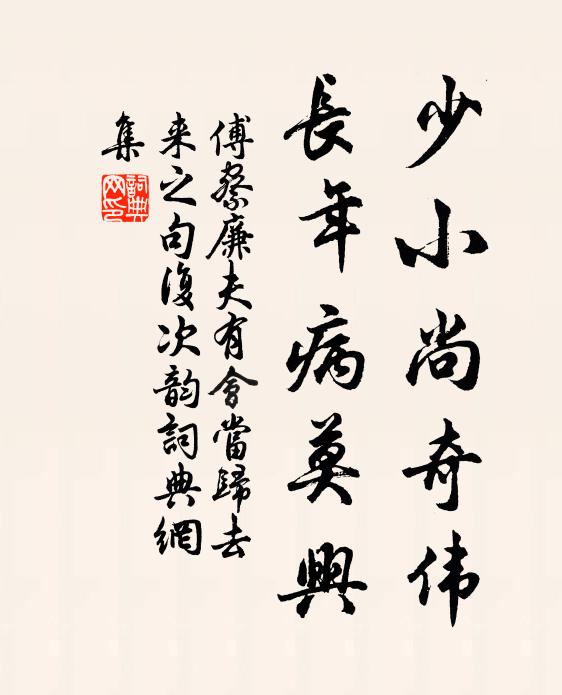 少小尚奇伟
長年病莫興
傅察廉夫有會當歸去
来之句復次韵詞典網
集
詞典
网印